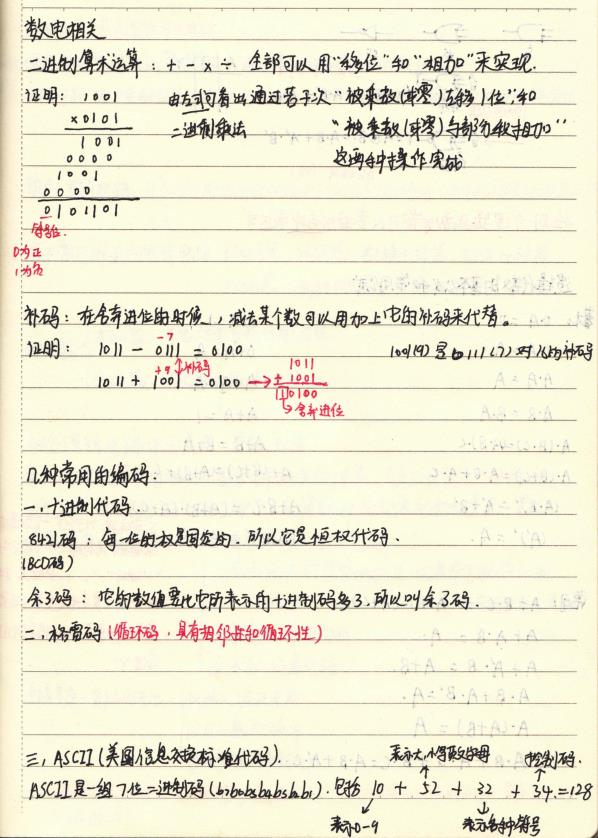 数电相关
二进制算术运算：+ - × ÷ 全部可以用"移位"和"相加"来实现.
证明： 1001 由左式可看出通过若干次"被乘数(或零)左移1位",和
x0101 二进制乘法 "被乘数(或零)与部分积相加"
1001 这两种操作完成
0000
1001
0000
0101101
符号位.
0为正
1为负
补码：在舍弃进位的时候，减去某个数可以用加上它的补码来代替。
-7
证明： 1011 - 0111 = 0100 1001(9)是 0111(7)对16的补码
+9 补码
1011 + 1001 = 0100 → 1011
+ 1001
10100
→舍弃进位
几种常用的编码.
一.十进制代码.
8421码：每一位的权是固定的.所以它是恒权代码.
(BCD码)
余3码：它的数值要比它所表示的十进制码多3.所以叫余3码.
二.格雷码(循环码.具有相邻性和循环性)
三.ASCII(美国信息交换标准代码). 表示大小写英文字母 控制码.
ASCII是一组7位二进制码(b7b6b5b4b3b2b1).包括 10 + 52 + 32 + 34.=128
表示0-9 表示各种符号